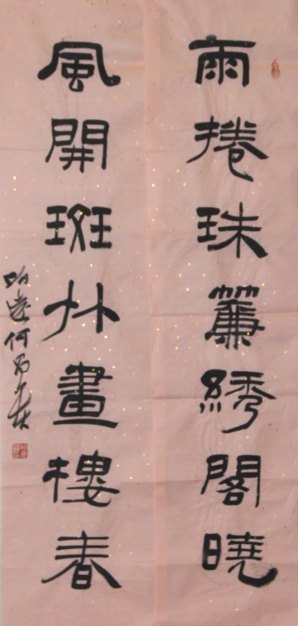 雨捲珠簾綉閣曉
風開斑竹畫樓春